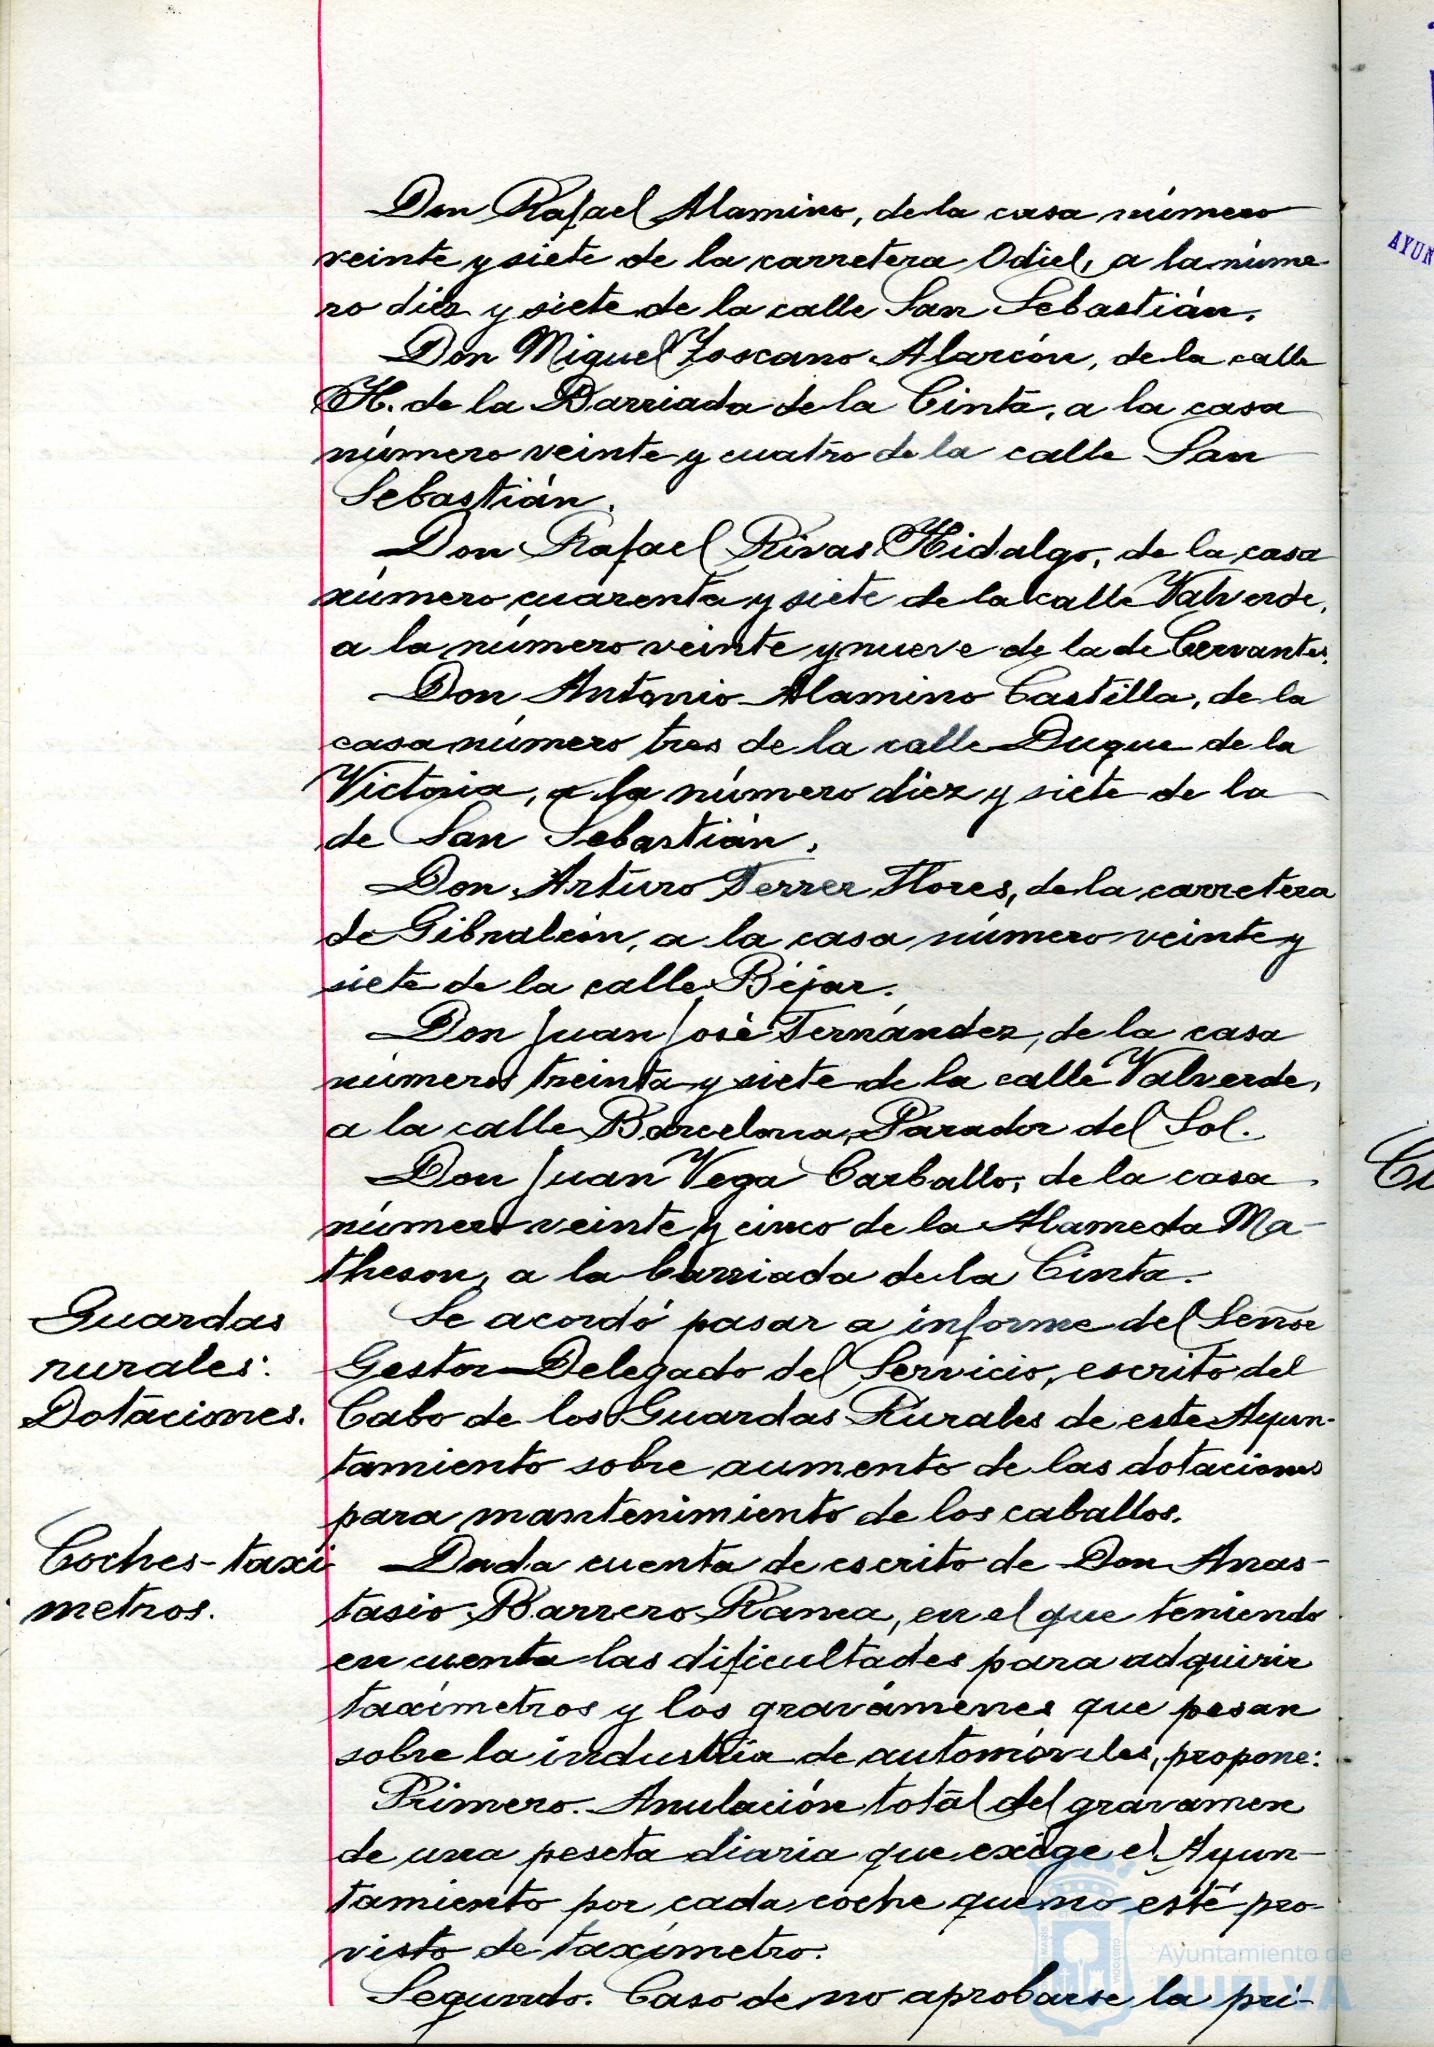 Don Rafael Alamino, de la casa número
veinte y siete de la carretera Odiel, a la núme-
ro diez y siete de la calle San Sebastián.
Don Miguel Toscano Alarcón, de la calle
H. de la Barriada de la Cinta, a la casa
número veinte y cuatro de la calle San
Sebastián.
Don Rafael Rivas Hidalgo, de la casa
número cuarenta y siete de la calle Valverde,
a la número veinte y nueve de la de Cervantes.
Don Antonio Alamino Castilla, de la
casa número tres de la calle Duque de la
Victoria, a la número diez y siete de la
de San Sebastián.
Don Arturo Ferrer Flores, de la carretera
de Gibraleón, a la casa número veinte y
siete de la calle Béjar.
Don Juan José Fernández, de la casa
número treinta y siete de la calle Valverde,
a la calle Barcelona, Parador del Sol.
Don Juan Vega Carballo, de la casa
número veinte y cinco de la Alameda Ma-
theson, a la barriada de la Cinta.
Guardas
rurales:
Dotaciones.
Se acordó pasar a informe del Señor
Gestor Delegado del Servicio, escrito del
Cabo de los Guardas Rurales de este Ayun-
tamiento sobre aumento de las dotaciones
para mantenimiento de los caballos.
Coches-taxi
metros.
Dada cuenta de escrito de Don Anas-
tasio Barrero Rama, en el que teniendo
en cuenta las dificultades para adquirir
taxímetros y los gravámenes que pesan
sobre la industria de automóviles, propone:
Primero. Anulación total del gravamen
de una peseta diaria que exige el Ayun-
tamiento por cada coche que no esté pro-
visto de taxímetro.
Segundo. Caso de no aprobarse la pri-
Ayuntamiento de
HUELVA
AYUN